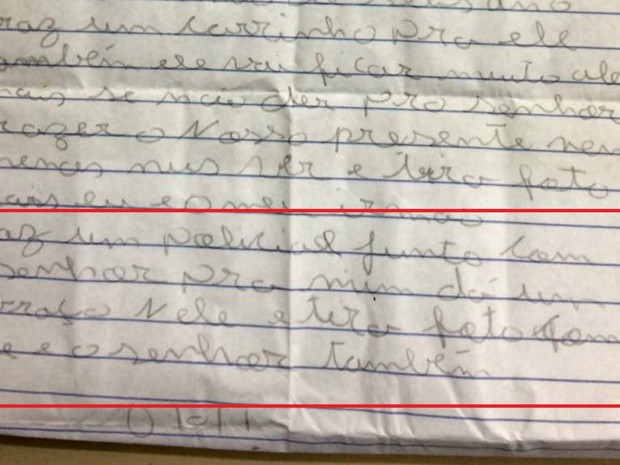 raz um carrinho pra ele
ambém ele vai ficar muito ale
mais se não der pro senhor
razer o Nosso presente vem
menos nus ver e tira foto
ais eu e o meu irmão
az um policial junto com
senhor pra mim dá um
rraço Nele e tira foto com
e e o senhor também